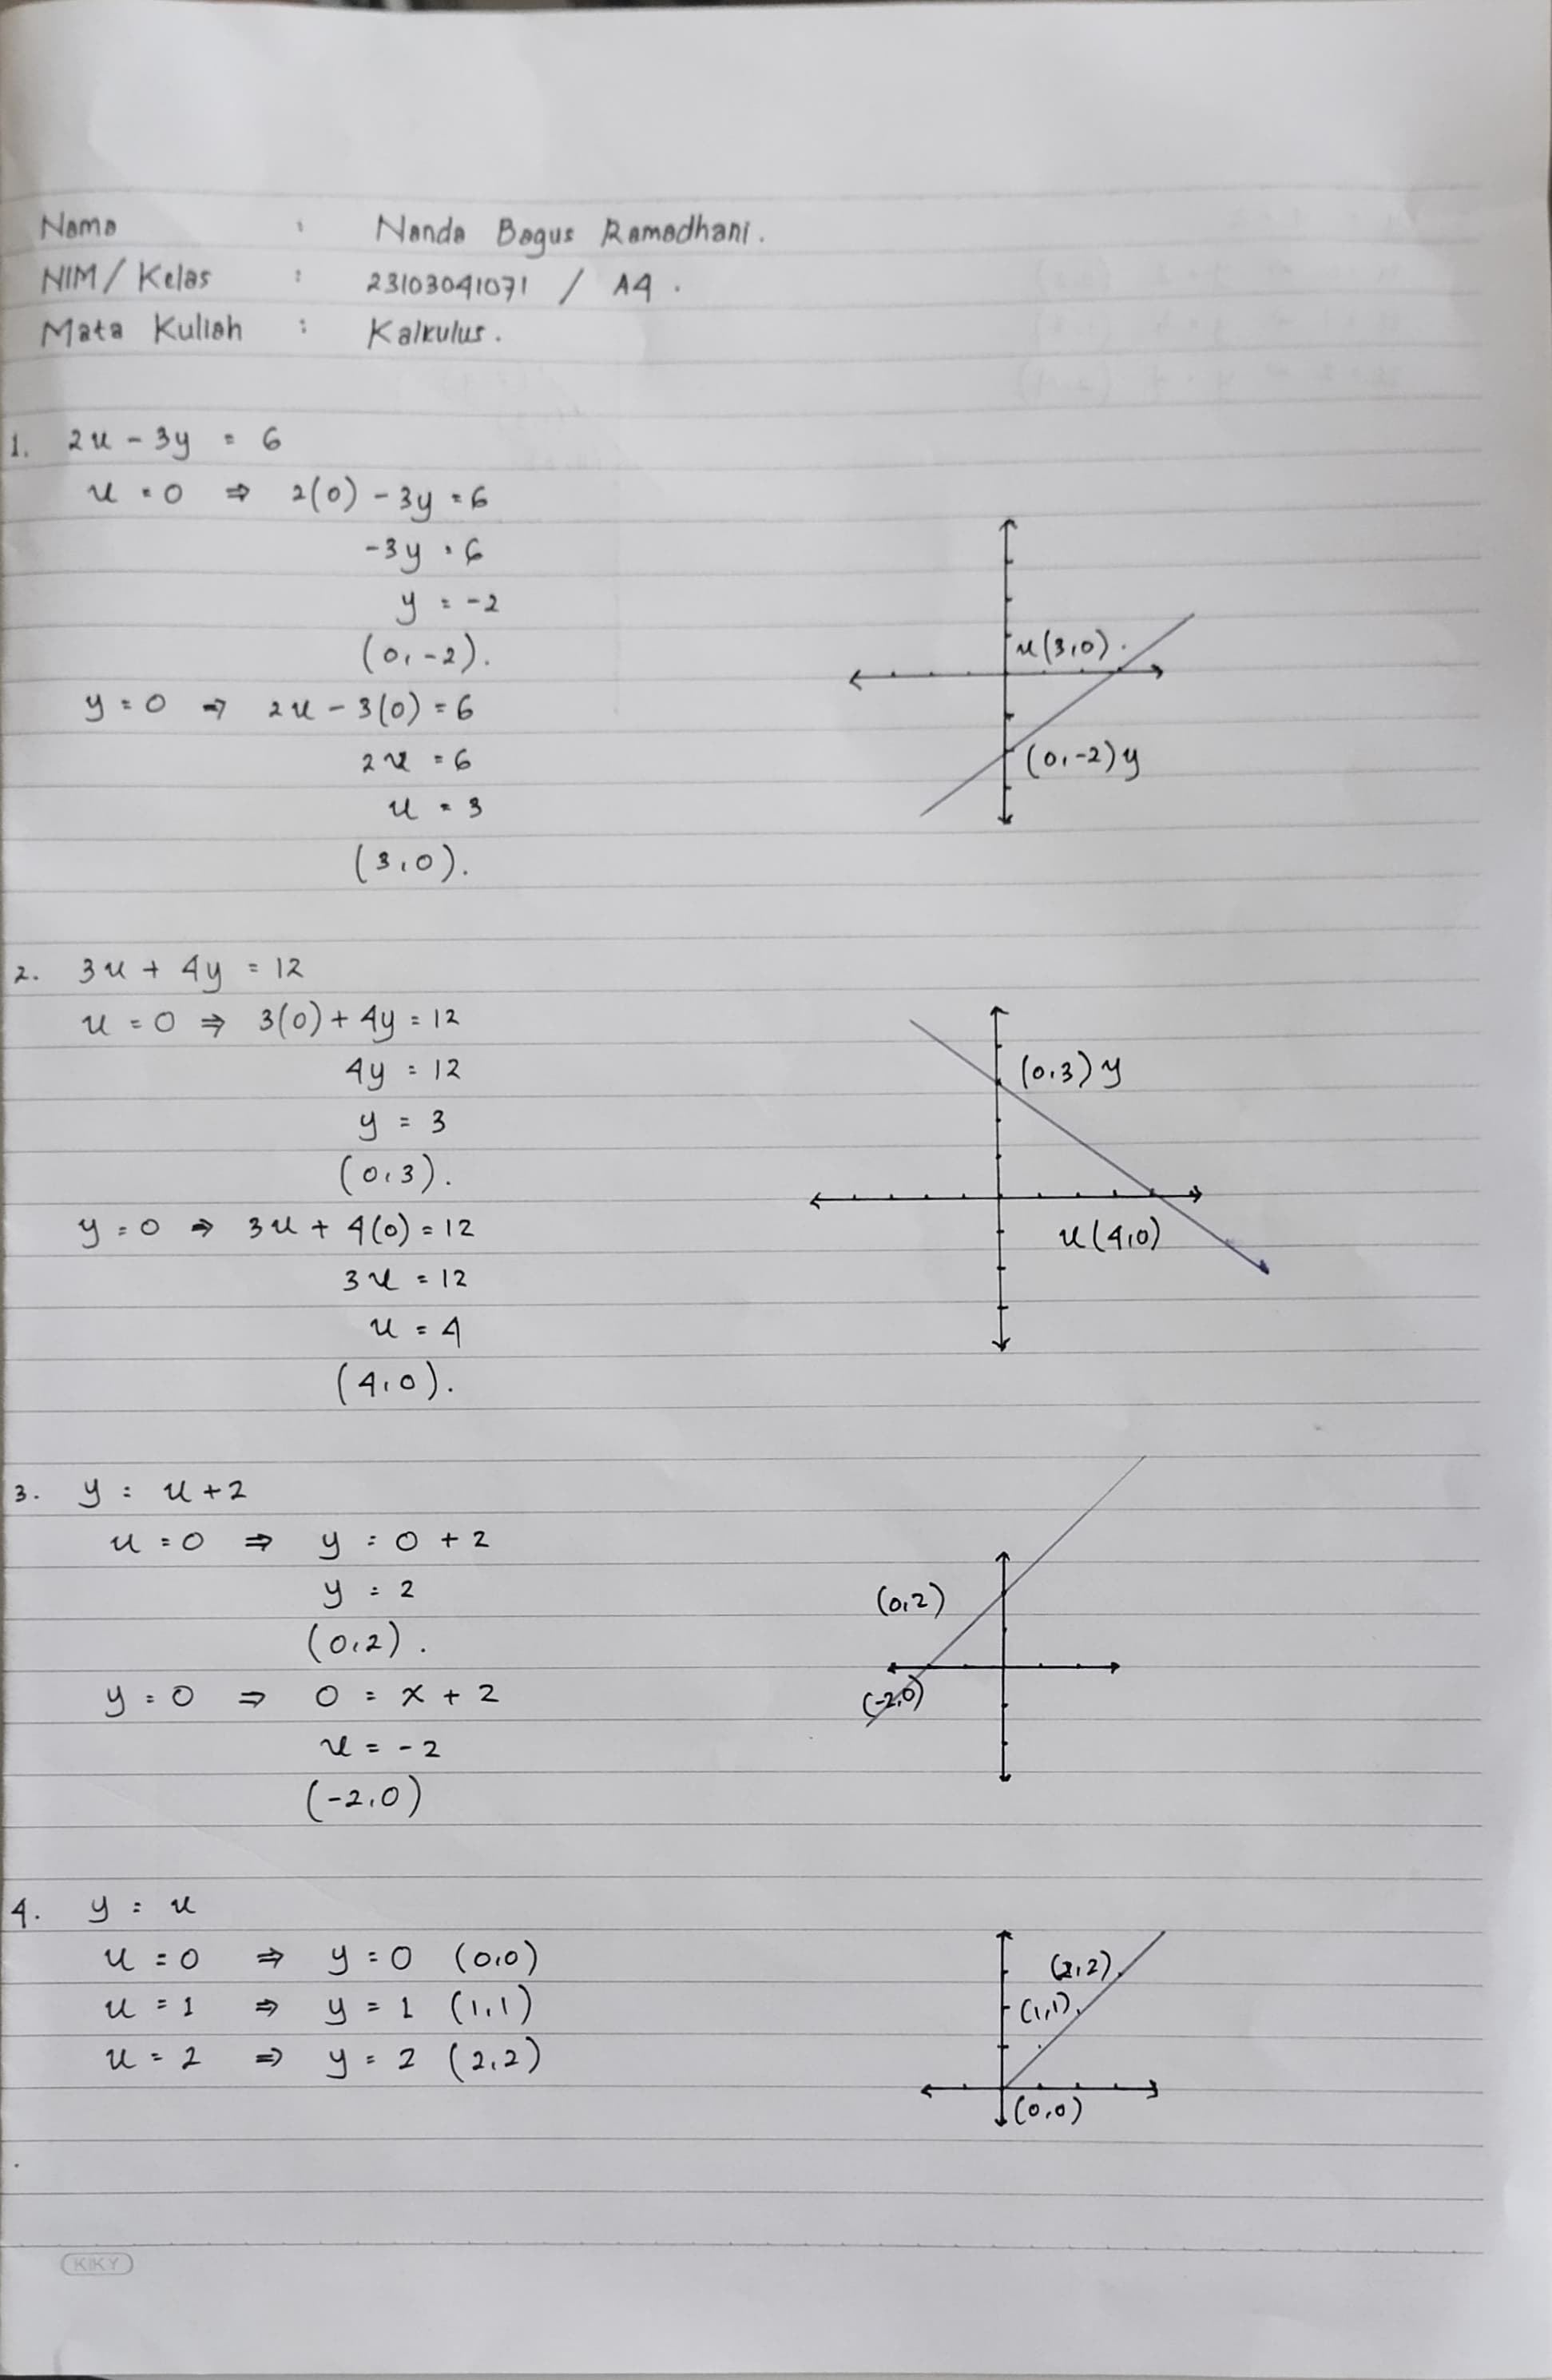 Nama : Nanda Bagus Ramadhani.
NIM / Kelas : 23103041071 / A4.
Mata Kuliah : Kalkulus.
1. 2x - 3y = 6
x = 0 ⇒ 2(0) - 3y = 6
-3y = 6
y = -2
(0,-2).
y = 0 ⇒ 2x - 3(0) = 6
2x = 6
x = 3
(3,0).
x(3,0).
(0,-2)y
2. 3x + 4y = 12
x = 0 ⇒ 3(0) + 4y = 12
4y = 12
y = 3
(0,3).
y = 0 ⇒ 3x + 4(0) = 12
3x = 12
x = 4
(4,0).
(0,3)y
x(4,0)
3. y = x + 2
x = 0 ⇒ y = 0 + 2
y = 2
(0,2).
y = 0 ⇒ 0 = x + 2
x = -2
(-2,0)
(0,2)
(-2,0)
4. y = x
x = 0 ⇒ y = 0 (0,0)
x = 1 ⇒ y = 1 (1,1)
x = 2 ⇒ y = 2 (2,2)
(2,2)
(1,1)
(0,0)
KIKY